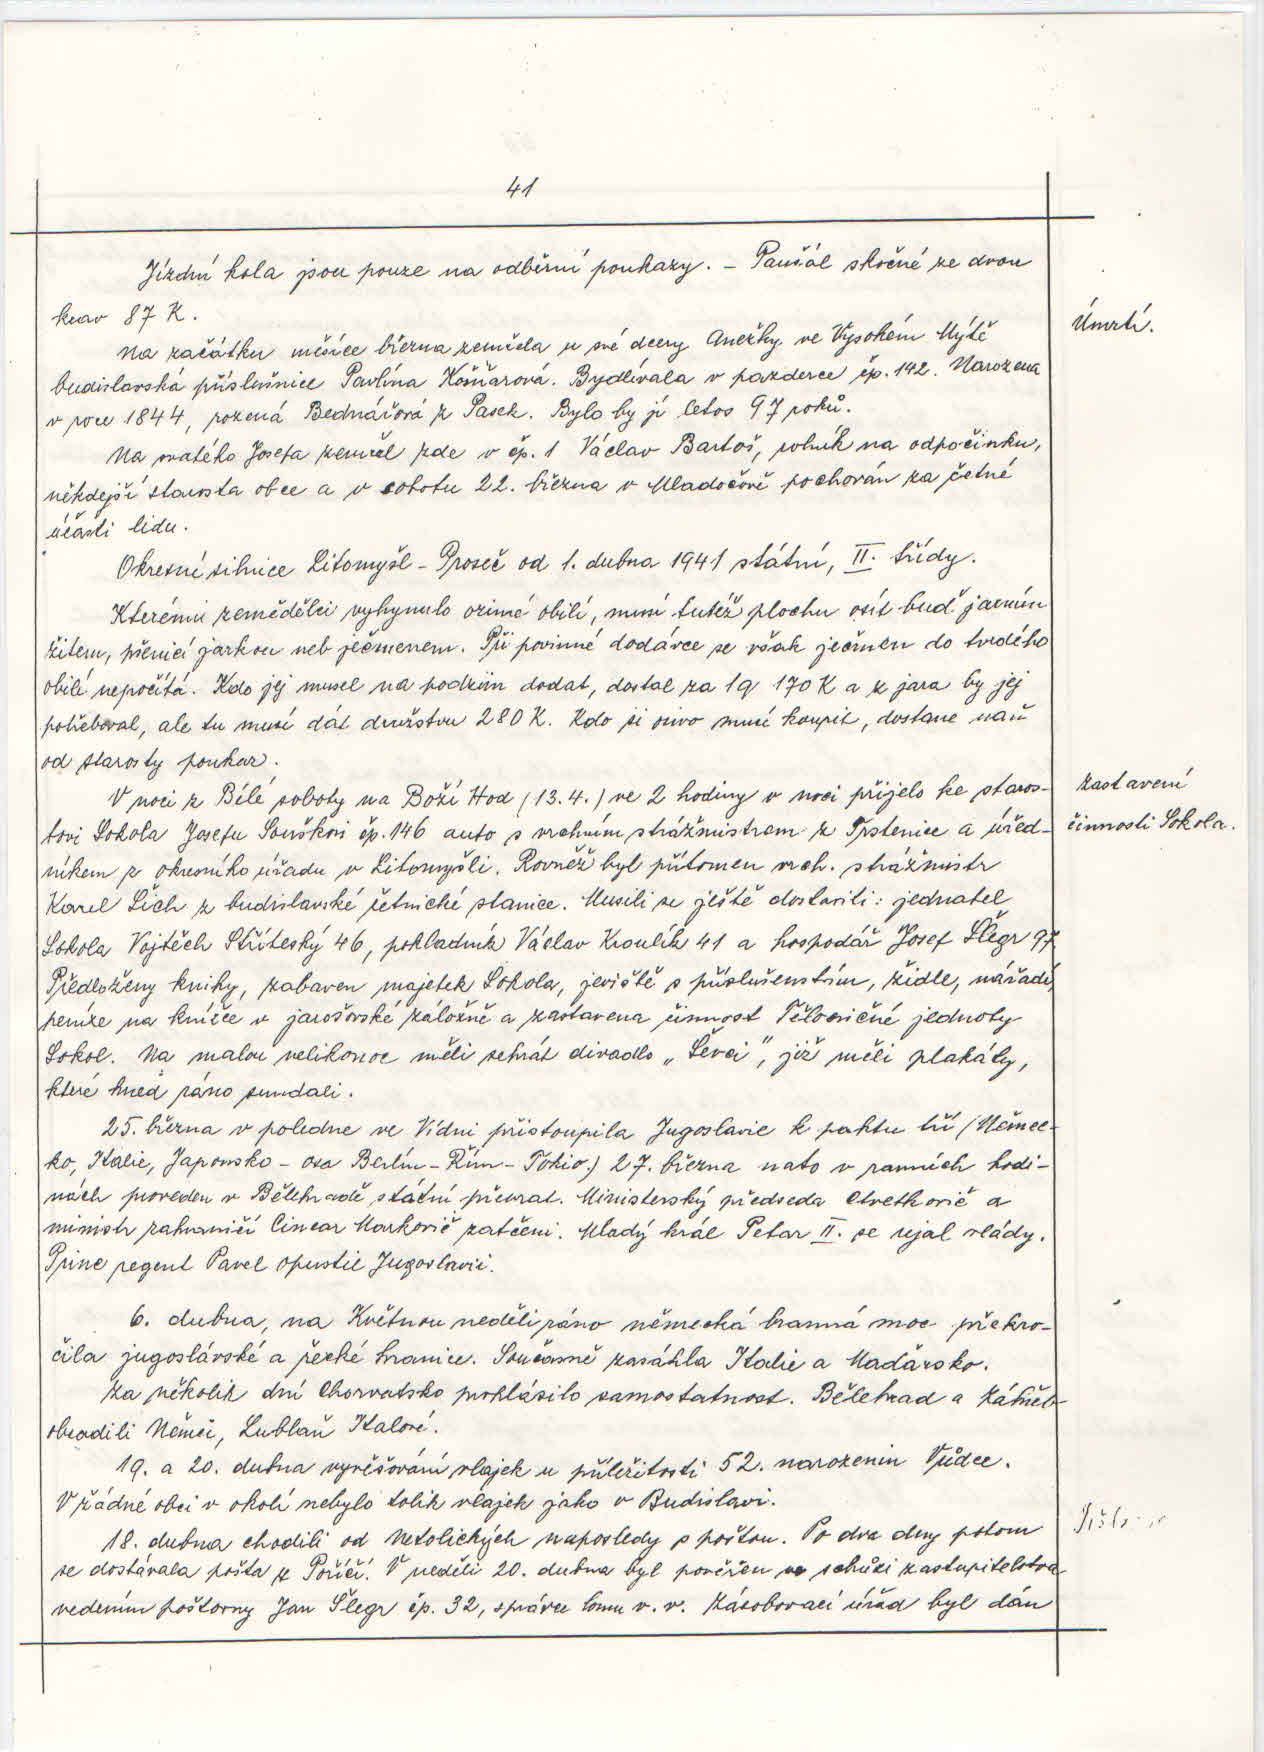 41
Jízdní kola jsou pouze na odběrní poukazy. – Paušál skočné ze dvou
krav 87 K.
Úmrtí.
Na začátku měsíce března zemřela u své dcery Anežky ve Vysokém Mýtě
budislavská příslušnice Pavlína Košňarová. Bydlívala v pazderce čp. 142. Narozena
v roce 1844, rozená Bednářová z Pasek. Bylo by jí letos 97 roků.
Na svatého Josefa zemřel zde v čp. 1 Václav Bartoš, rolník na odpočinku,
někdejší starosta obce a v sobotu 22. března v Mladočově pochován za četné
účasti lidu.
Okresní silnice Litomyšl – Proseč od 1. dubna 1941 státní, II. třídy.
Kterému zemědělci vyhynulo ozimé obilí, musí tutéž plochu osít buď jarním
žitem, pšenicí jarkou neb ječmenem. Při povinné dodávce se však ječmen do tvrdého
obilí nepočítá. Kdo jej musel na podzim dodat, dostal za 1q 170 K a z jara by jej
potřeboval, ale tu musí dát družstvu 280 K. Kdo si osivo musí koupit, dostane naň
od starosty poukaz.
V noci z Bílé soboty na Boží Hod (13.4.) ve 2 hodiny v noci přijelo ke staros-
zastavení
tovi Sokola Josefu Souškovi čp. 146 auto s vrchním strážmistrem z Trstenice a úřed-
činnosti Sokola.
níkem z okresního úřadu v Litomyšli. Rovněž byl přítomen vrch. strážmistr
Karel Šich z budislavské četnické stanice. Musili se ještě dostavili: jednatel
Sokola Vojtěch Stříteský 46, pokladník Václav Kroulík 41 a hospodář Josef Šlegr 97
Předloženy knihy, zabaven majetek Sokola, jeviště s příslušenstvím, židle, nářadí,
peníze na knížce v jarošovské záložně a zastavena činnost Tělocvičné jednoty
Sokol. Na malou velikonoc měli sehrát divadlo „Ševci", již měli plakáty,
které hned ráno sundali.
25. března v poledne ve Vídni přistoupila Jugoslavie k paktu tří (Němec-
ko, Italie, Japonsko – osa Berlín – Řím – Tokio.) 27. března nato v ranních hodi-
nách proveden v Bělehradě státní převrat. Ministerský předseda Cvetkovič a
ministr zahraničí Cincar Markovič zatčeni. Mladý král Petar II. se ujal vlády.
Princ regent Pavel opustil Jugoslavii.
6. dubna, na Květnou neděli ráno německá branná moc překro-
čila jugoslávské a řecké hranice. Současně zasáhla Italie a Maďarsko.
Za několik dní Chorvatsko prohlásilo samostatnost. Bělehrad a Záhřeb
obsadili Němci, Lublaň Italové.
19. a 20. dubna vyvěšování vlajek u příležitosti 52. narozenin Vůdce.
V žádné obci v okolí nebylo tolik vlajek jako v Budislavi.
18. dubna chodili od Netolických naposledy s poštou. Po dva dny potom
se dostávala pošta z Poříčí. V neděli 20. dubna byl pověřen ve schůzi zastupitelstva
vedením poštovny Jan Šlegr čp. 32, správce lomu v. v. Zásobovací úřad byl dán